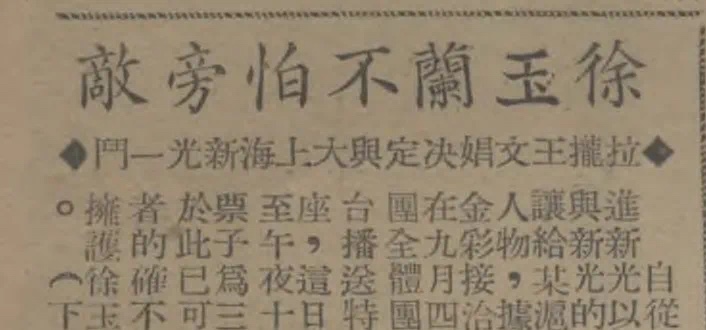 徐玉蘭不怕旁敵
◆拉攏王文娟决定與大上海新光一鬥◆
自從
進新光以
與新光的
讓給某滬
人物，據
金彩接洽
在九月四
團全體團
台播送特
座，這日
至午夜十
票子爲三
於此已可
者的確不
擁護徐玉
。（下